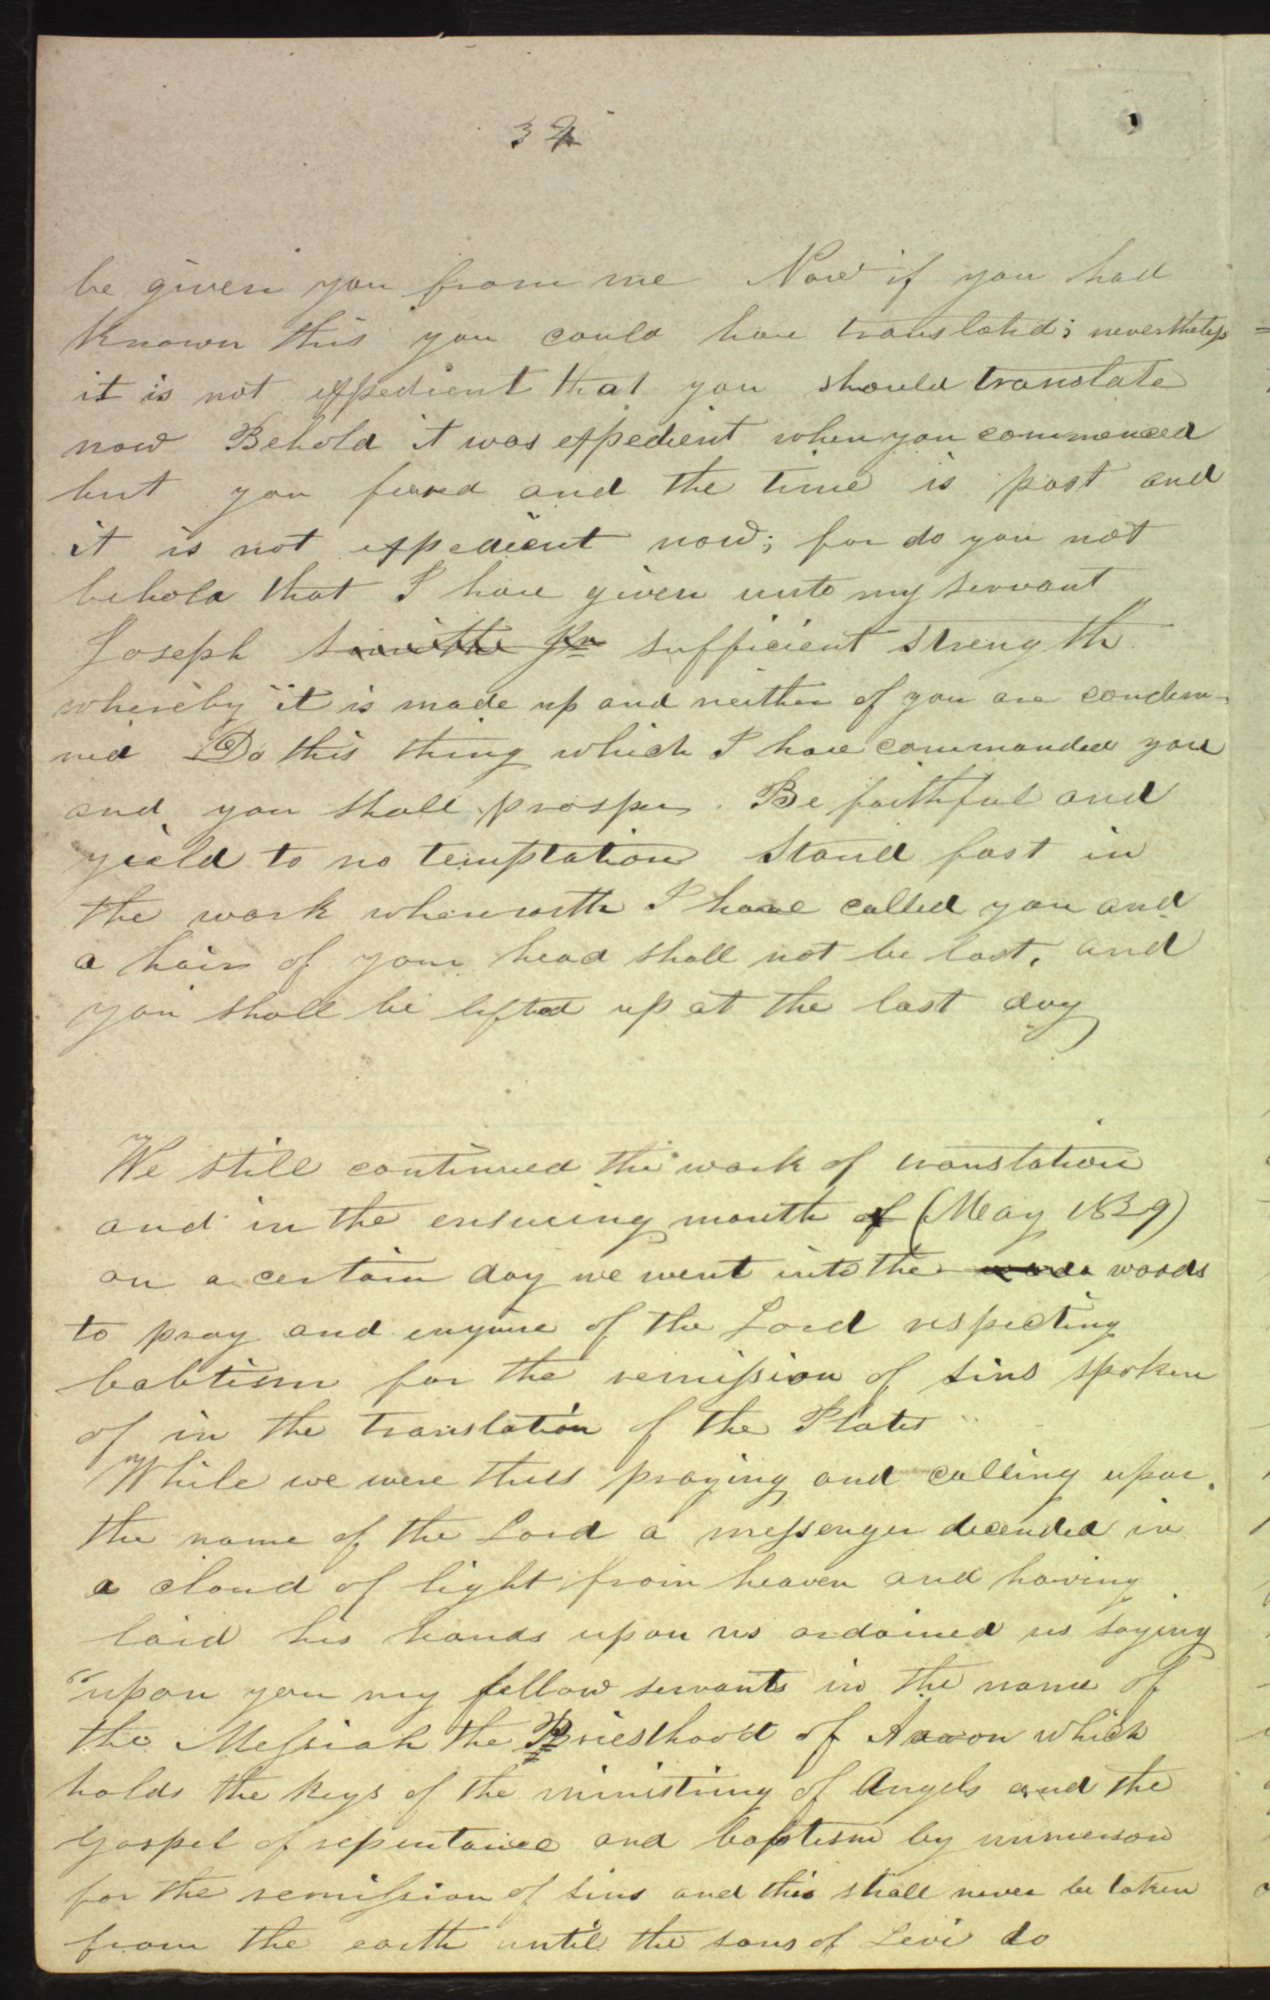 32
be given you from me Now if you had
known this you could have translated; nevertheless
it is not expedient that you should translate
now Behold it was expedient when you commenced
but you feared and the time is past and
it is not expedient now; for do you not
behold that I have given unto my servant
Joseph Smith Jr sufficient strength
whereby it is made up and neither of you are condem-
ned Do this thing which I have commanded you
and you shall prosper. Be faithful and
yield to no temptation Stand fast in
the work wherewith I have called you and
a hair of your head shall not be lost, and
you shall be lifted up at the last day
We still continued the work of translation
and in the ensuing month of (May 1829)
on a certain day we went into the woods woods
to pray and enquire of the Lord respecting
babtism for the remission of sins spoken
of in the translation of the Plates
While we were thus praying and calling upon
the name of the Lord a messenger decended in
a cloud of light from heaven and having
laid his hands upon us ordained us saying
"upon you my fellow servants in the name of
the Messiah the Priesthood of Aaron which
holds the keys of the ministring of Angels and the
gospel of repentance and baptism by immerson
for the remission of sins and this shall never be taken
from the earth until the sons of Levi do